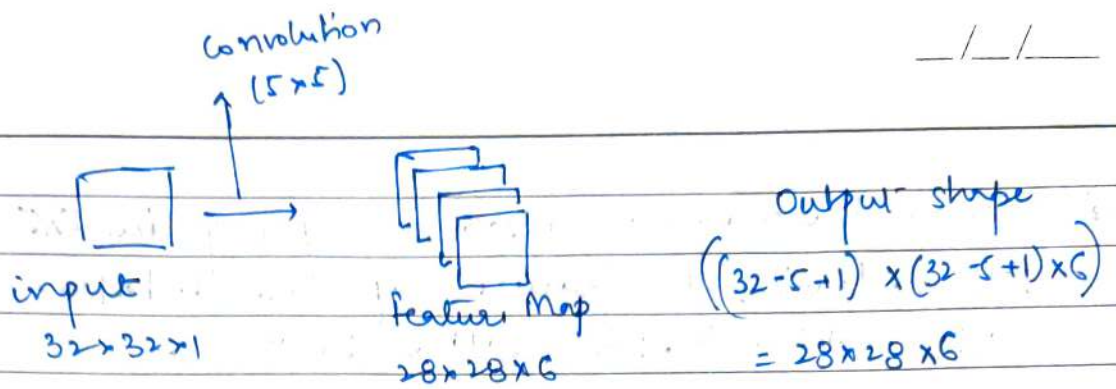 Convolution
(5×5)
__/__/____
input
32×32×1
Feature Map
28×28×6
Output shape
((32-5+1) × (32-5+1)×6)
= 28×28×6